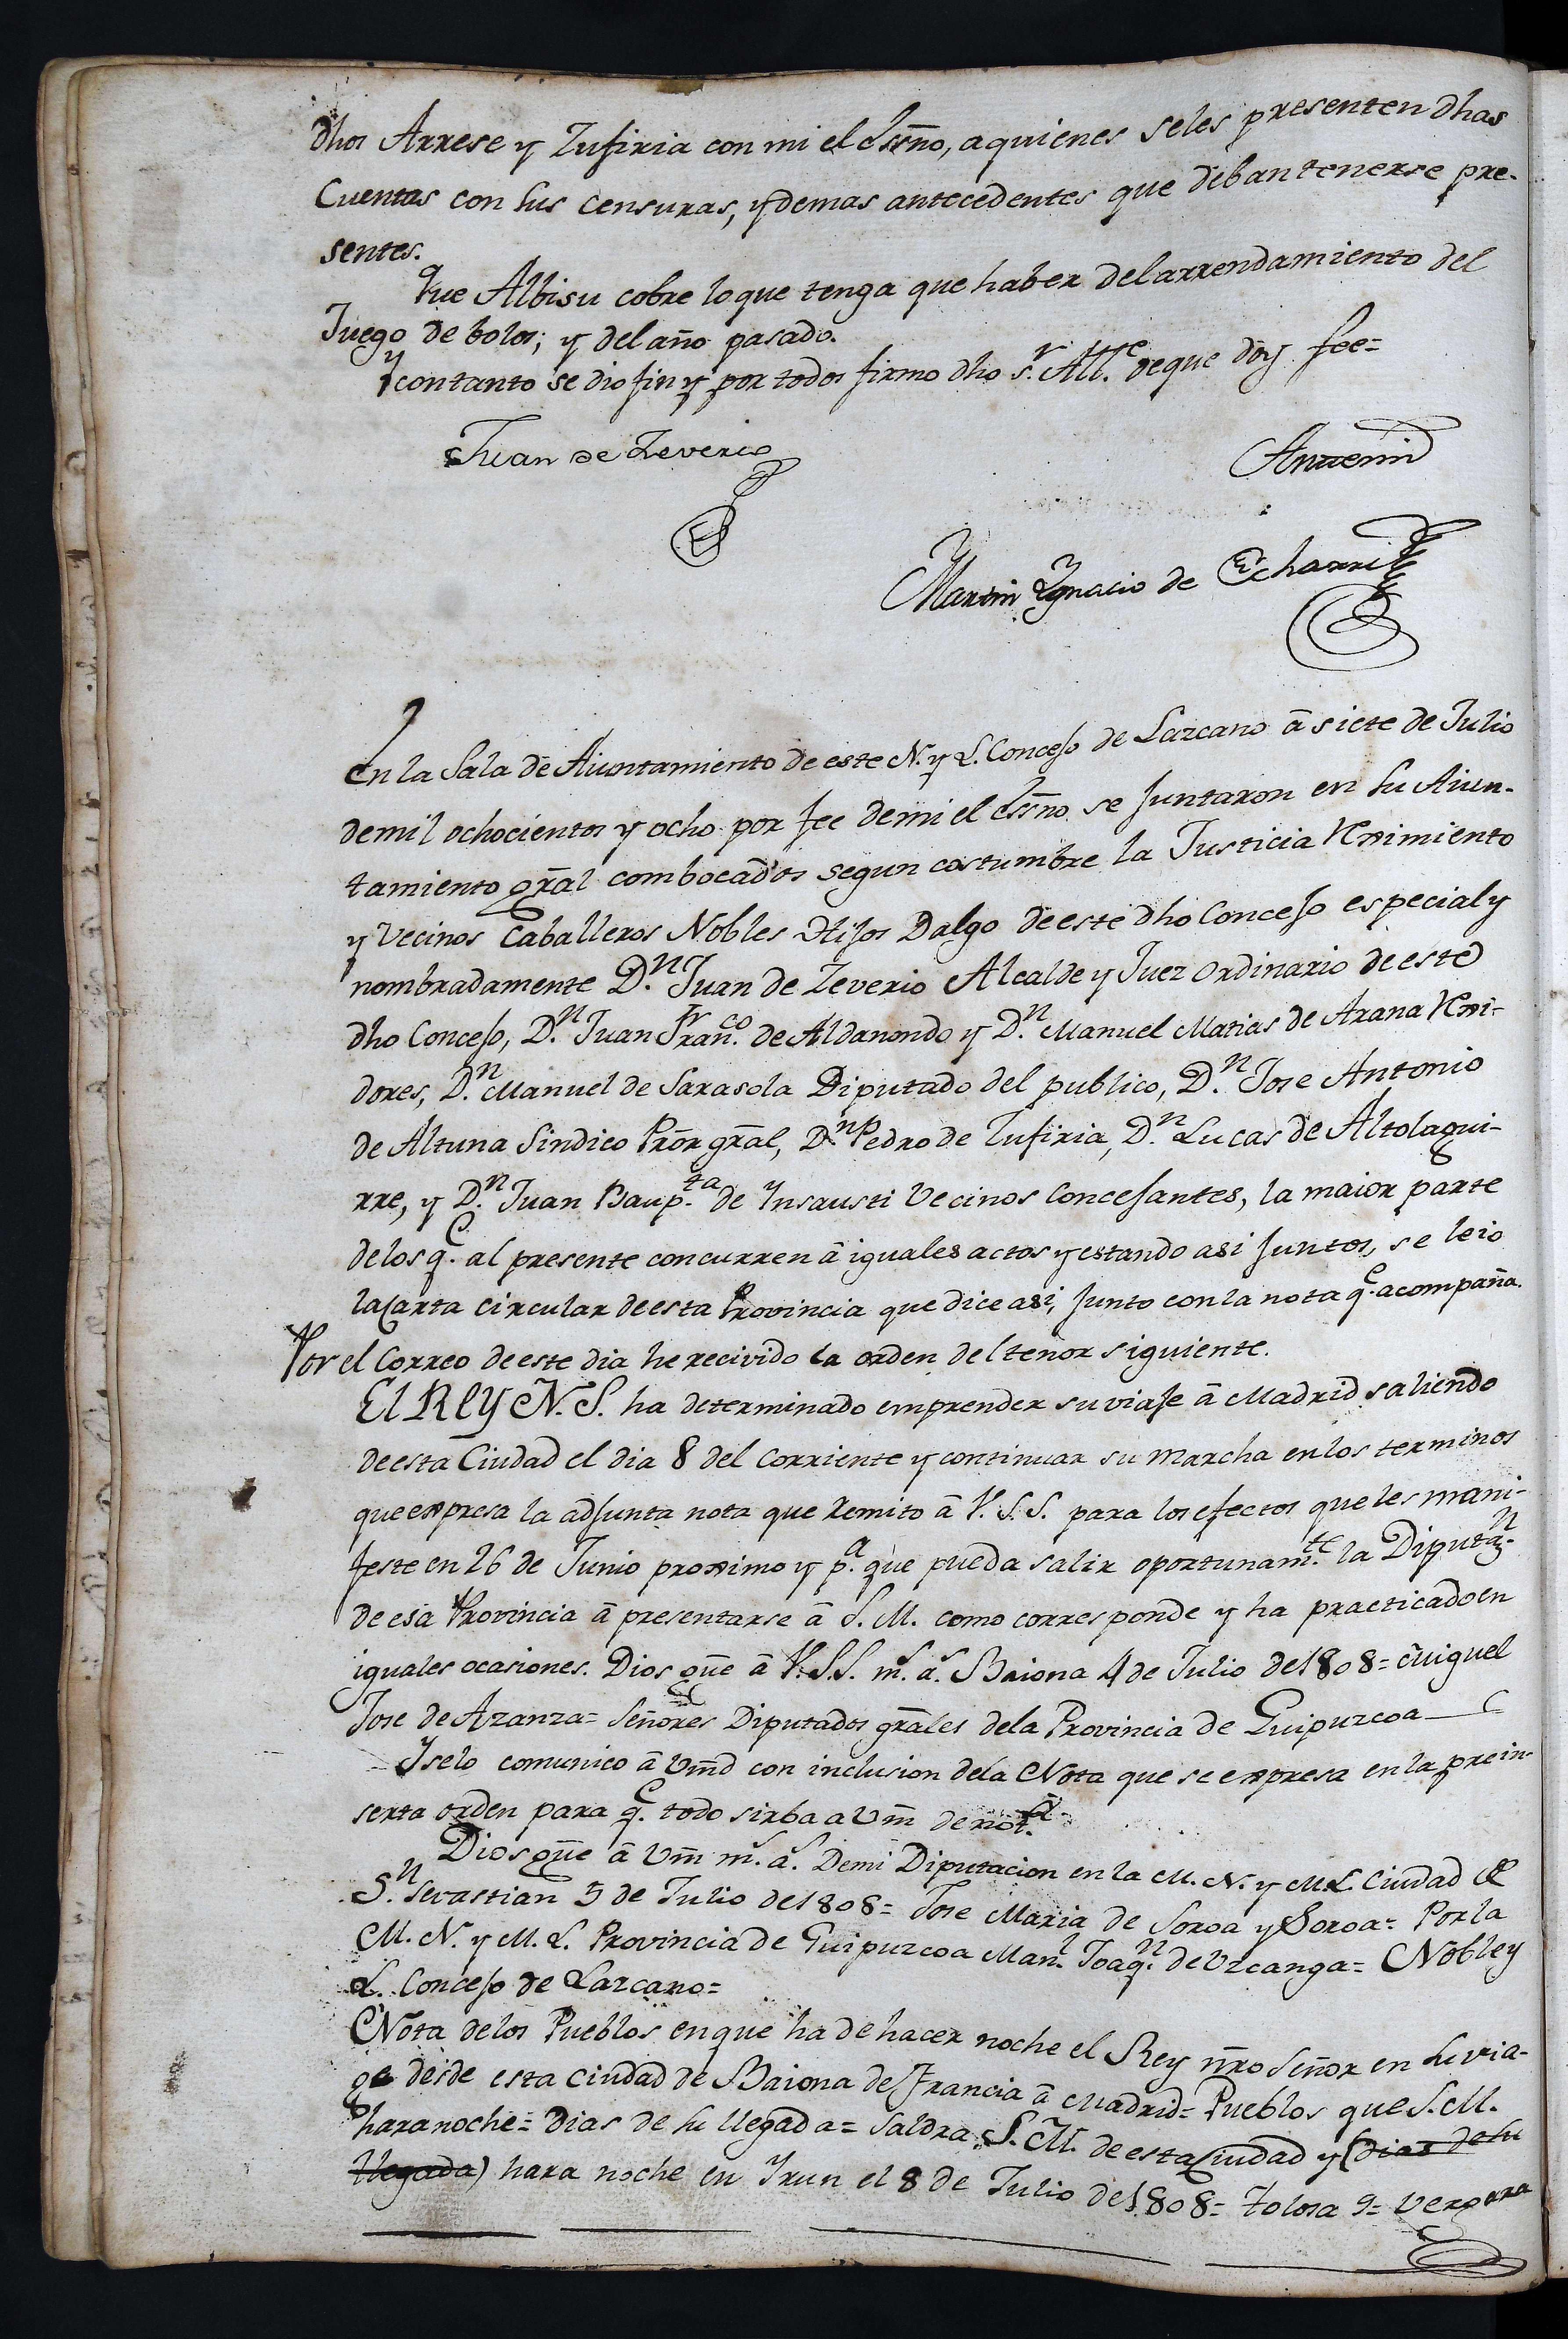 dhos Arrese y Zufiria con mi el Essno, aquienes seles presenten dhas
Cuentas con sus censuras, y demas antecedentes que deban tenerse pre-
sentes.
Que Albisu cobre lo que tenga que haber del arrendamiento del
Juego de bolos; y del año pasado.
Y con tanto se dio fin y por todos firmo dho s.r All.e de que doy fee=
Juan de Zeverio
Antemi
Martin Ygnacio de Echarri
En la Sala de Aiuntamiento de este N. y L. Concejo de Lazcano â siete de Julio
de mil ochocientos y ocho por fee demi el Essno se juntaron en su Aiun-
tamiento gral combocados segun costumbre la Justicia Reximiento
y Vecinos Caballeros Nobles Hijos Dalgo de este dho Concejo especial y
nombradamente D.n Juan de Zeverio Alcalde y Juez ordinario de este
dho Concejo, D.n Juan Fran.co de Aldanondo y D.n Manuel Matias de Arana Rexi-
dores, D.n Manuel de Sarasola Diputado del publico, D.n Jose Antonio
de Altuna Sindico Pror gral, D.n Pedro de Zufiria, D.n Lucas de Altolagui-
rre, y D.n Juan Baup.ta de Ynsausti Vecinos concejantes, la maior parte
delos q.e al presente concurren â iguales actos y estando asi juntos, se leio
la Carta circular de esta Provincia que dice asi, junto con la nota q.e acompaña.
Por el Correo de este dia he recivido la orden del tenor siguiente.
El REY N. S. ha determinado emprender su viaje â Madrid saliendo
de esta Ciudad el dia 8 del Corriente y continuar su marcha en los terminos
que expresa la adjunta nota que Remito â V. S. S. para los efectos que les mani-
feste en 26 de Junio proximo y p.a que pueda salir oportunam.te la Diputaz.n
de esa Provincia â presentarse â S. M. como corresponde y ha practicado en
iguales ocasiones. Dios gue â V. S. S. m.s a.s Baiona 4 de Julio de 1808= Miguel
Jose de Azanza= Señores Diputados grales dela Provincia de Guipuzcoa
Yselo comunico â Vmd con inclusion dela Nota que se expresa en la prein-
serta orden para q.e todo sirba a Vm de not.a
Dios gue â Vm m.s a.s Demi Diputacion en la M. N. y M. L. Ciudad de
S.n Sevastian 5 de Julio de 1808= Jose Maria de Soroa y Soroa= Por la
M. N. y M. L. Provincia de Guipuzcoa Man.l Joaq.n de Uzcanga= Noble y
L. Concejo de Lazcano=
Nota delos Pueblos en que ha de hacer noche el Rey nro Señor en su via-
ge desde esta Ciudad de Baiona de Francia â Madrid= Pueblos que S. M.
hara noche= Dias de su llegada= Saldra S. M. de esta Ciudad y (Dias de su
llegada) hara noche en Yrun el 8 de Julio de 1808= Tolosa 9= Vergara